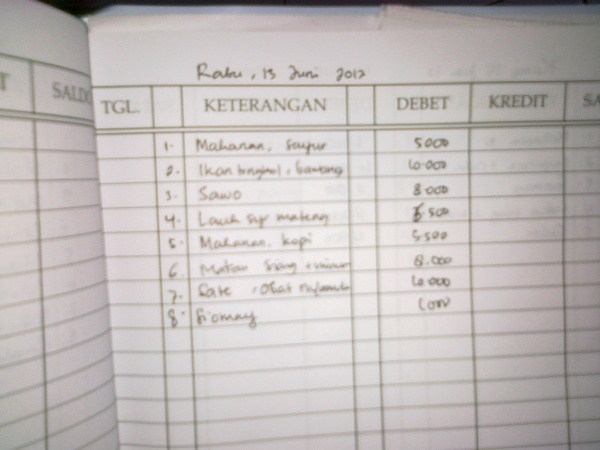 Rabu, 13 Juni 2012
T SALDO TGL. KETERANGAN DEBET KREDIT SA
1. Makanan, Sayur 5000
2. Ikan tongkol, 10.000
3. Sawo 8.000
4. Lauk syr mateng 500
5. Makanan, kopi 5.500
6. Makan Siang 8.000
7. Sate, Obat 10.000
8. Siomay 1000